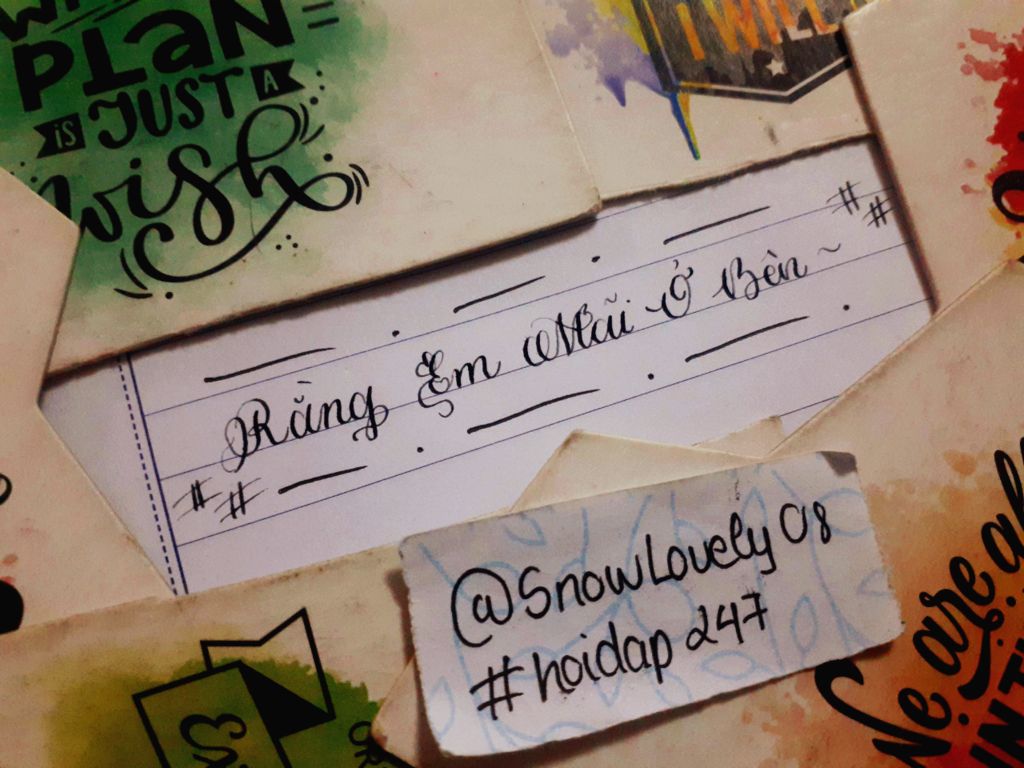 PLAN
IS JUST A
wish
I WILL
# #
Rằng Em Mãi Ở Bên ~
# #
@SnowLovely 08
#hoidap 247
We are all
IN